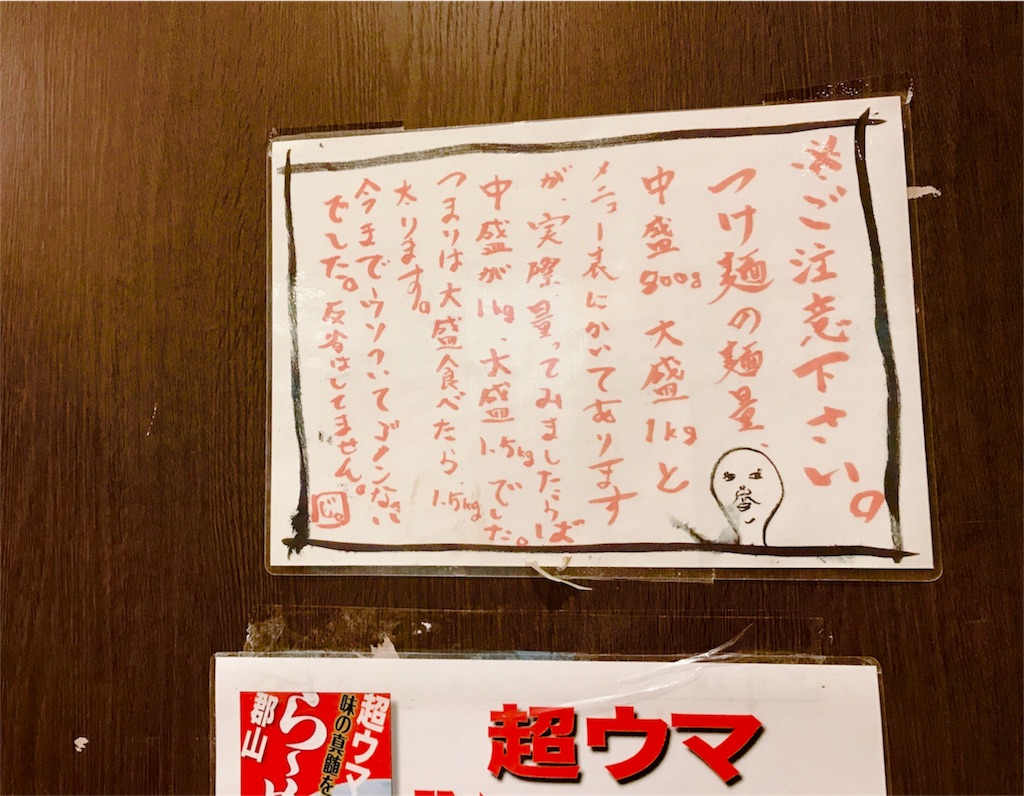 ※ご注意下さい。
つけ麺の麺量、
中盛800g 大盛1kgと
メニュー表にかいてあります
が、実際、量ってみましたらば
中盛が1kg、大盛1.5kgでした。
つまりは大盛食べたら1.5kg
太ります。
今までウソついてゴメンなさい
でした。反省はしてません。
じ。
超ウマ
味の真髄を
ら〜
郡山
超ウマ